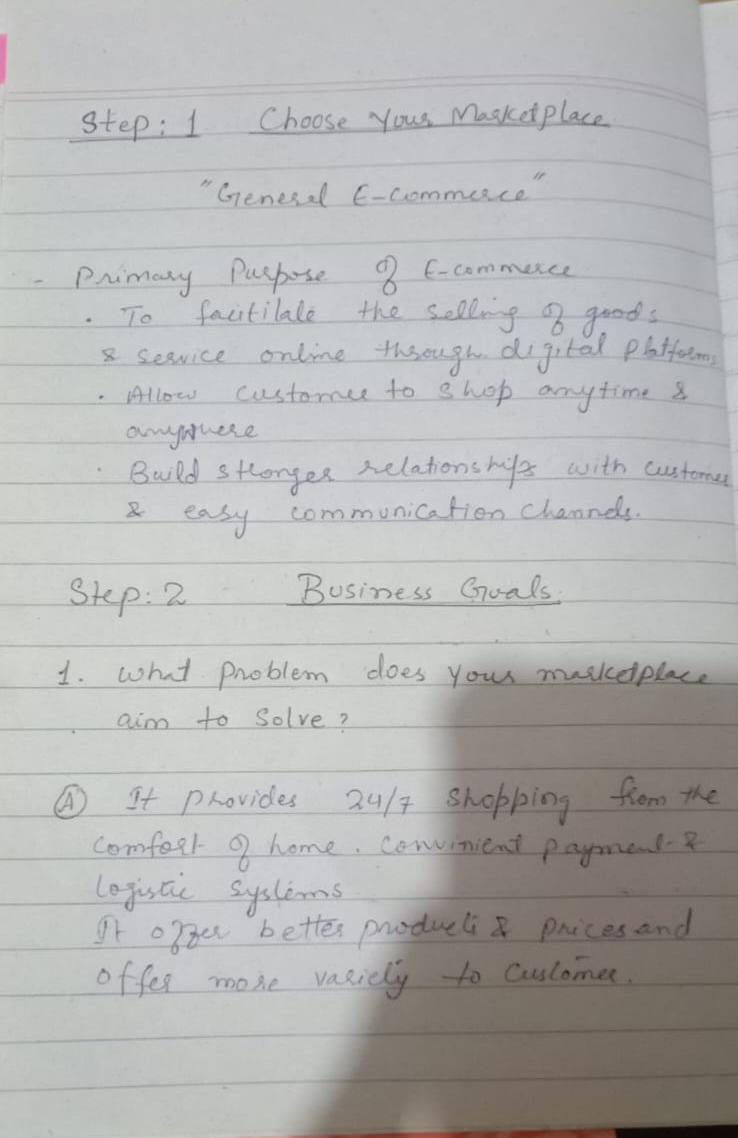 Step: 1 Choose Your Marketplace
"General E-commerce"
- Primary Purpose of E-commerce
• To facitilate the selling of goods
& service online through digital Platforms
• Allow customer to shop anytime &
anywhere
• Build stronger relationships with customer
& easy communication channels.
Step: 2 Business Goals.
1. What problem does your marketplace
aim to solve?
(A) It provides 24/7 shopping from the
comfort of home. convinient payment &
logistic systems
It offer better products & prices and
offer more variety to customer.